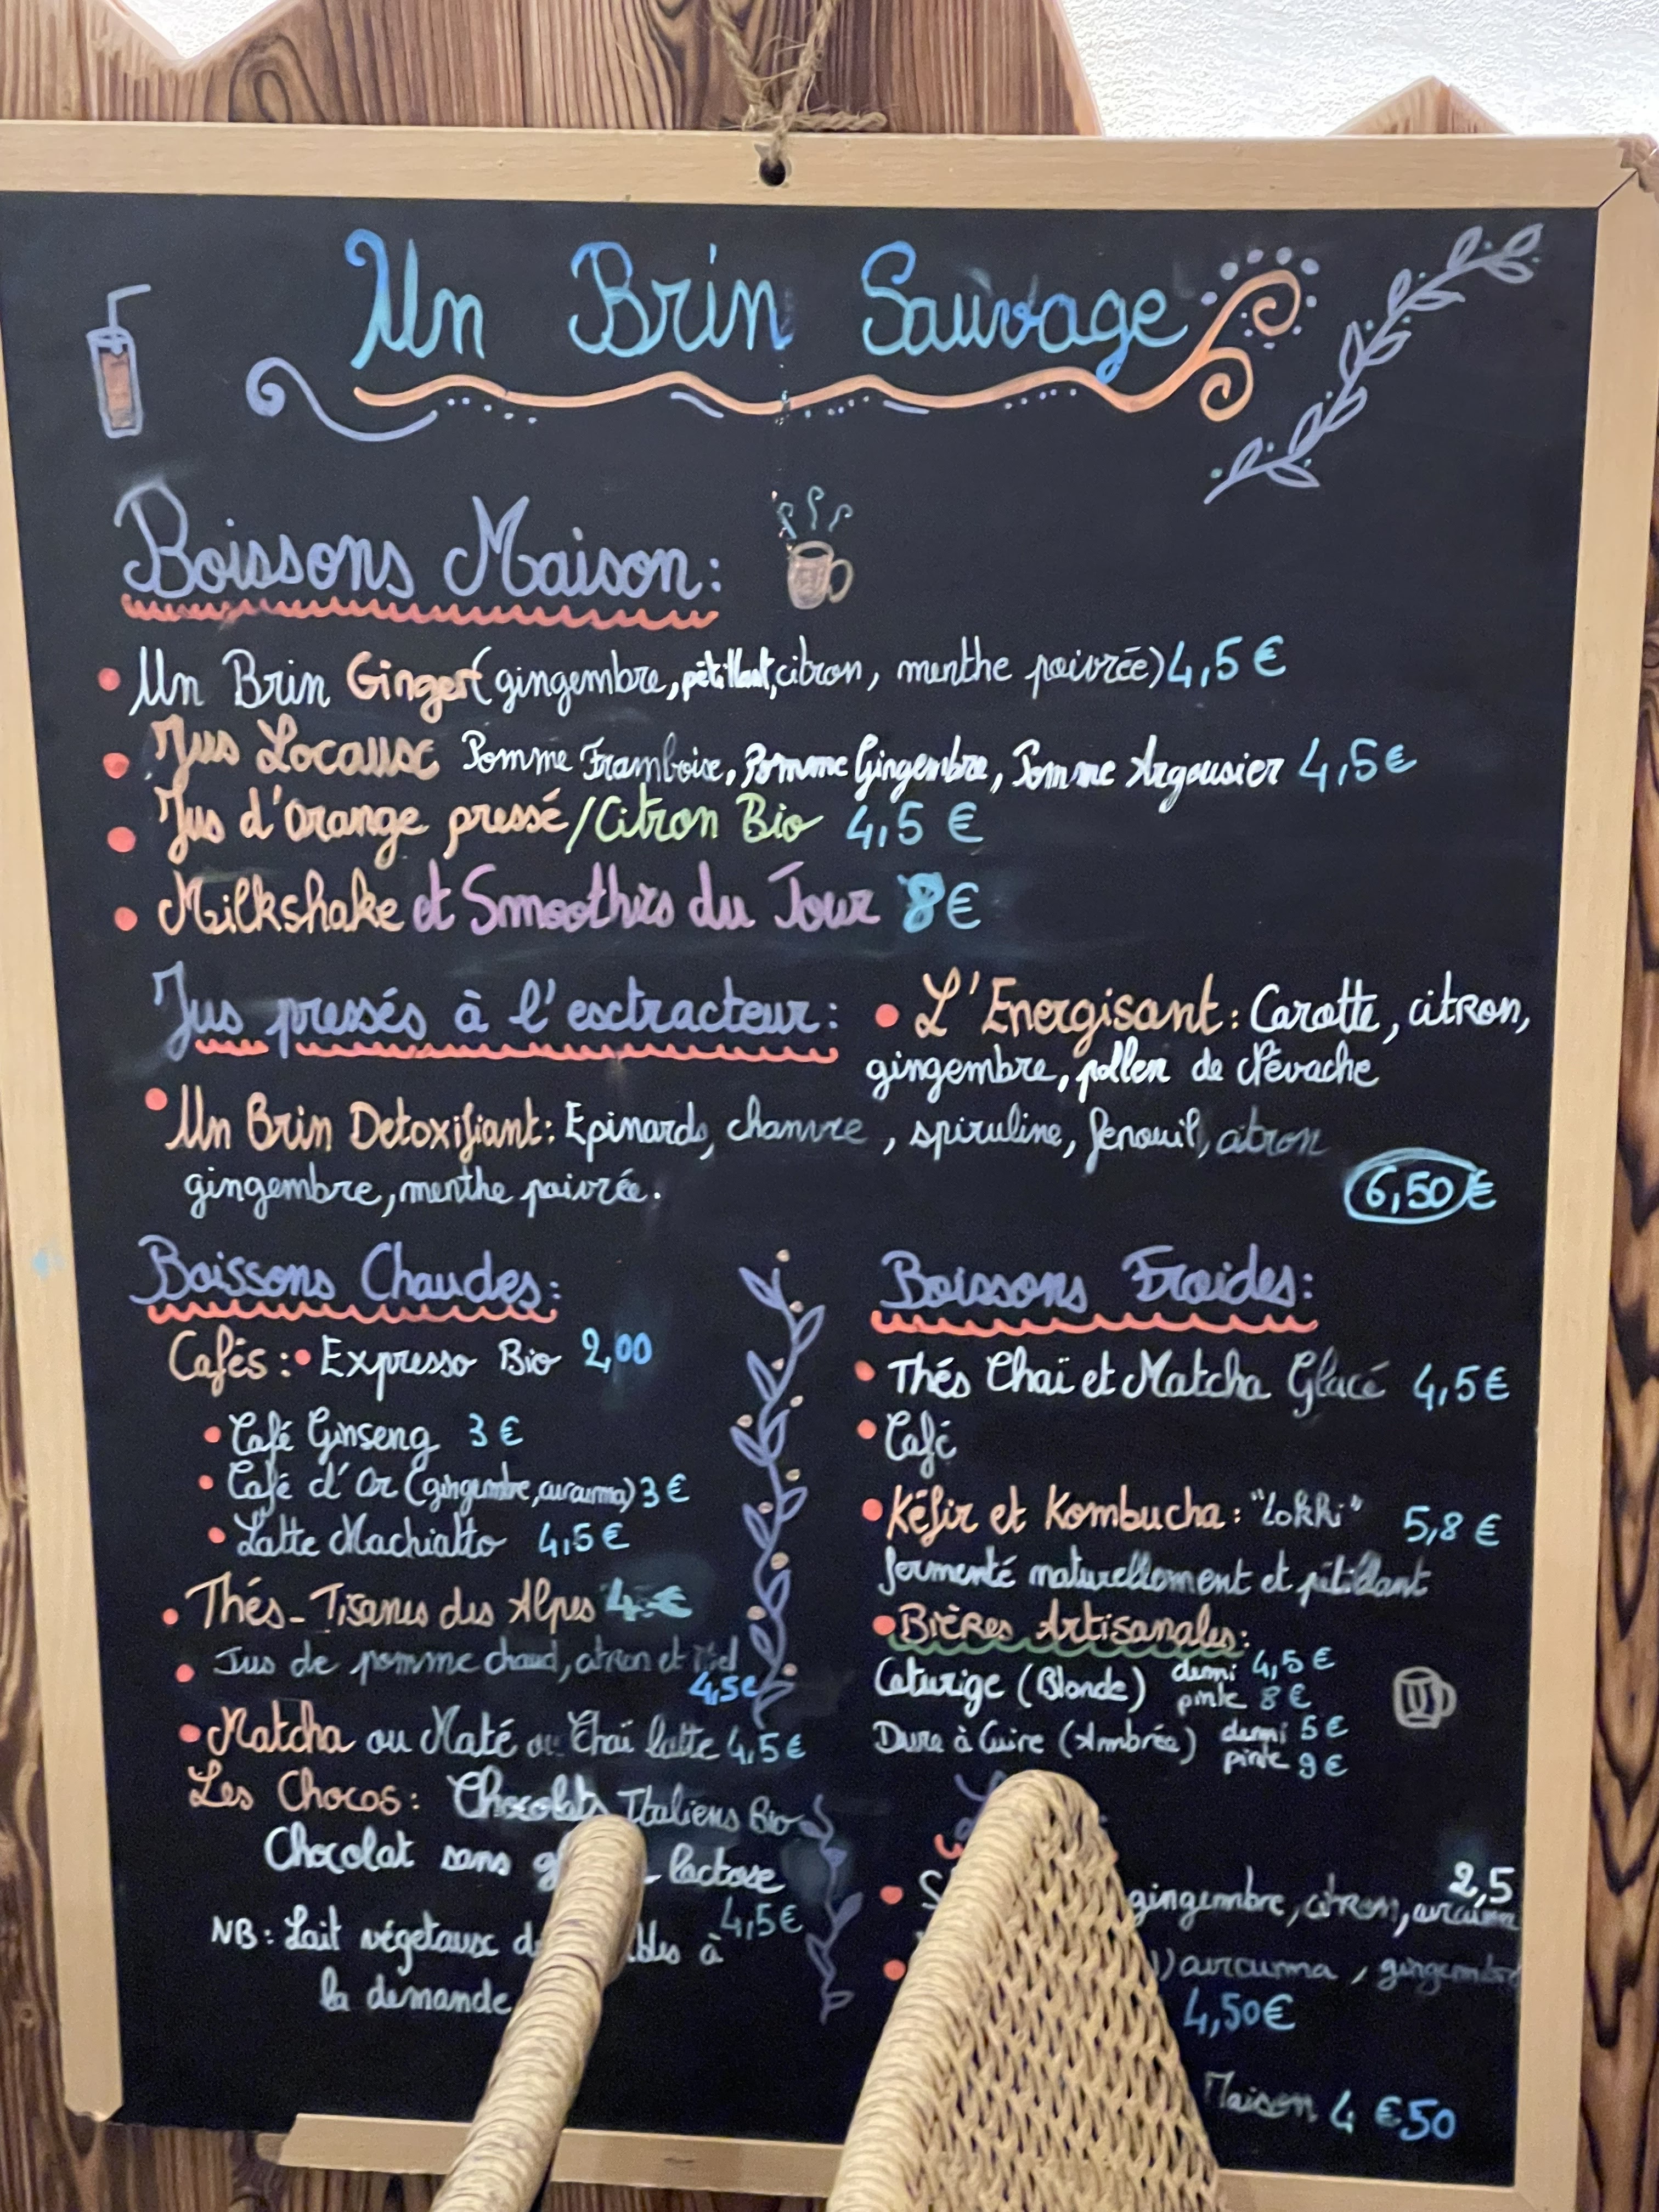 Un Brin Sauvage
Boissons Maison:
Un Brin Ginger (gingembre, pétillant, citron, menthe poivrée) 4,5 €
Jus Locaux Pomme Framboise, Pomme Gingembre, Pomme Argousier 4,5 €
Jus d'Orange pressé / Citron Bio 4,5 €
Milkshake et Smoothies du Jour 8 €
Jus pressés à l'extracteur:
L'Energisant: Carotte, citron,
gingembre, pollen de Névache
Un Brin Detoxifiant: Epinards, chanvre, spiruline, fenouil, citron
gingembre, menthe poivrée.
6,50 €
Boissons Chaudes:
Cafés: Expresso Bio 2,00
Café Ginseng 3 €
Café d'Or (gingembre, curcuma) 3 €
Latte Machiatto 4,5 €
Thés - Tisanes des Alpes 4 €
Jus de pomme chaud, citron et Miel
4,5€
Matcha ou Maté ou Chaï latte 4,5 €
Les Chocos: Chocolats Italiens Bio
Chocolat sans lactose
4,5€
NB: Lait végetaux à
la demande
Boissons Froides:
Thés Chaï et Matcha Glacé 4,5 €
Café
Kéfir et Kombucha: "Lokki" 5,8 €
fermenté naturellement et pétillant
Bières Artisanales:
Caturige (Blonde) demi 4,5 €
pinte 8 €
Dure à Cuire (Ambrée) demi 5 €
pinte 9 €
2,5
gingembre, citron, curcuma
curcuma, gingembre
4,50€
Maison 4 €50